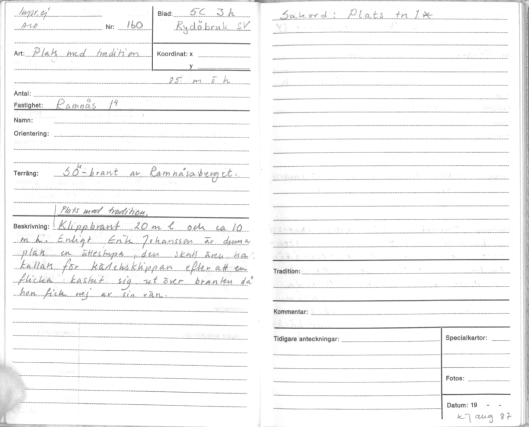 Impr. ej
Nr: 160
Blad: 5C 3h
Rydöbruk SV
Art: Plats med tradition
Koordinat: x
y
25 m ö h
Antal:
Fastighet: Ramnås 1:9
Namn:
Orientering:
Terräng: SÖ-brant av Ramnåsaberget.
Plats med tradition.
Beskrivning: Klippbrant 20 m l och ca 10
m h. Enligt Erik Johansson är denna
plats en ättestupa, den skall även ha
kallats för Kärleksklippan efter att en
flicka kastat sig ut över branten då
hon fick nej av sin vän.
Sakord: Plats tn 1*
Tradition:
Kommentar:
Tidigare anteckningar:
Specialkartor:
Fotos:
Datum: 19 - -
KJ aug 87